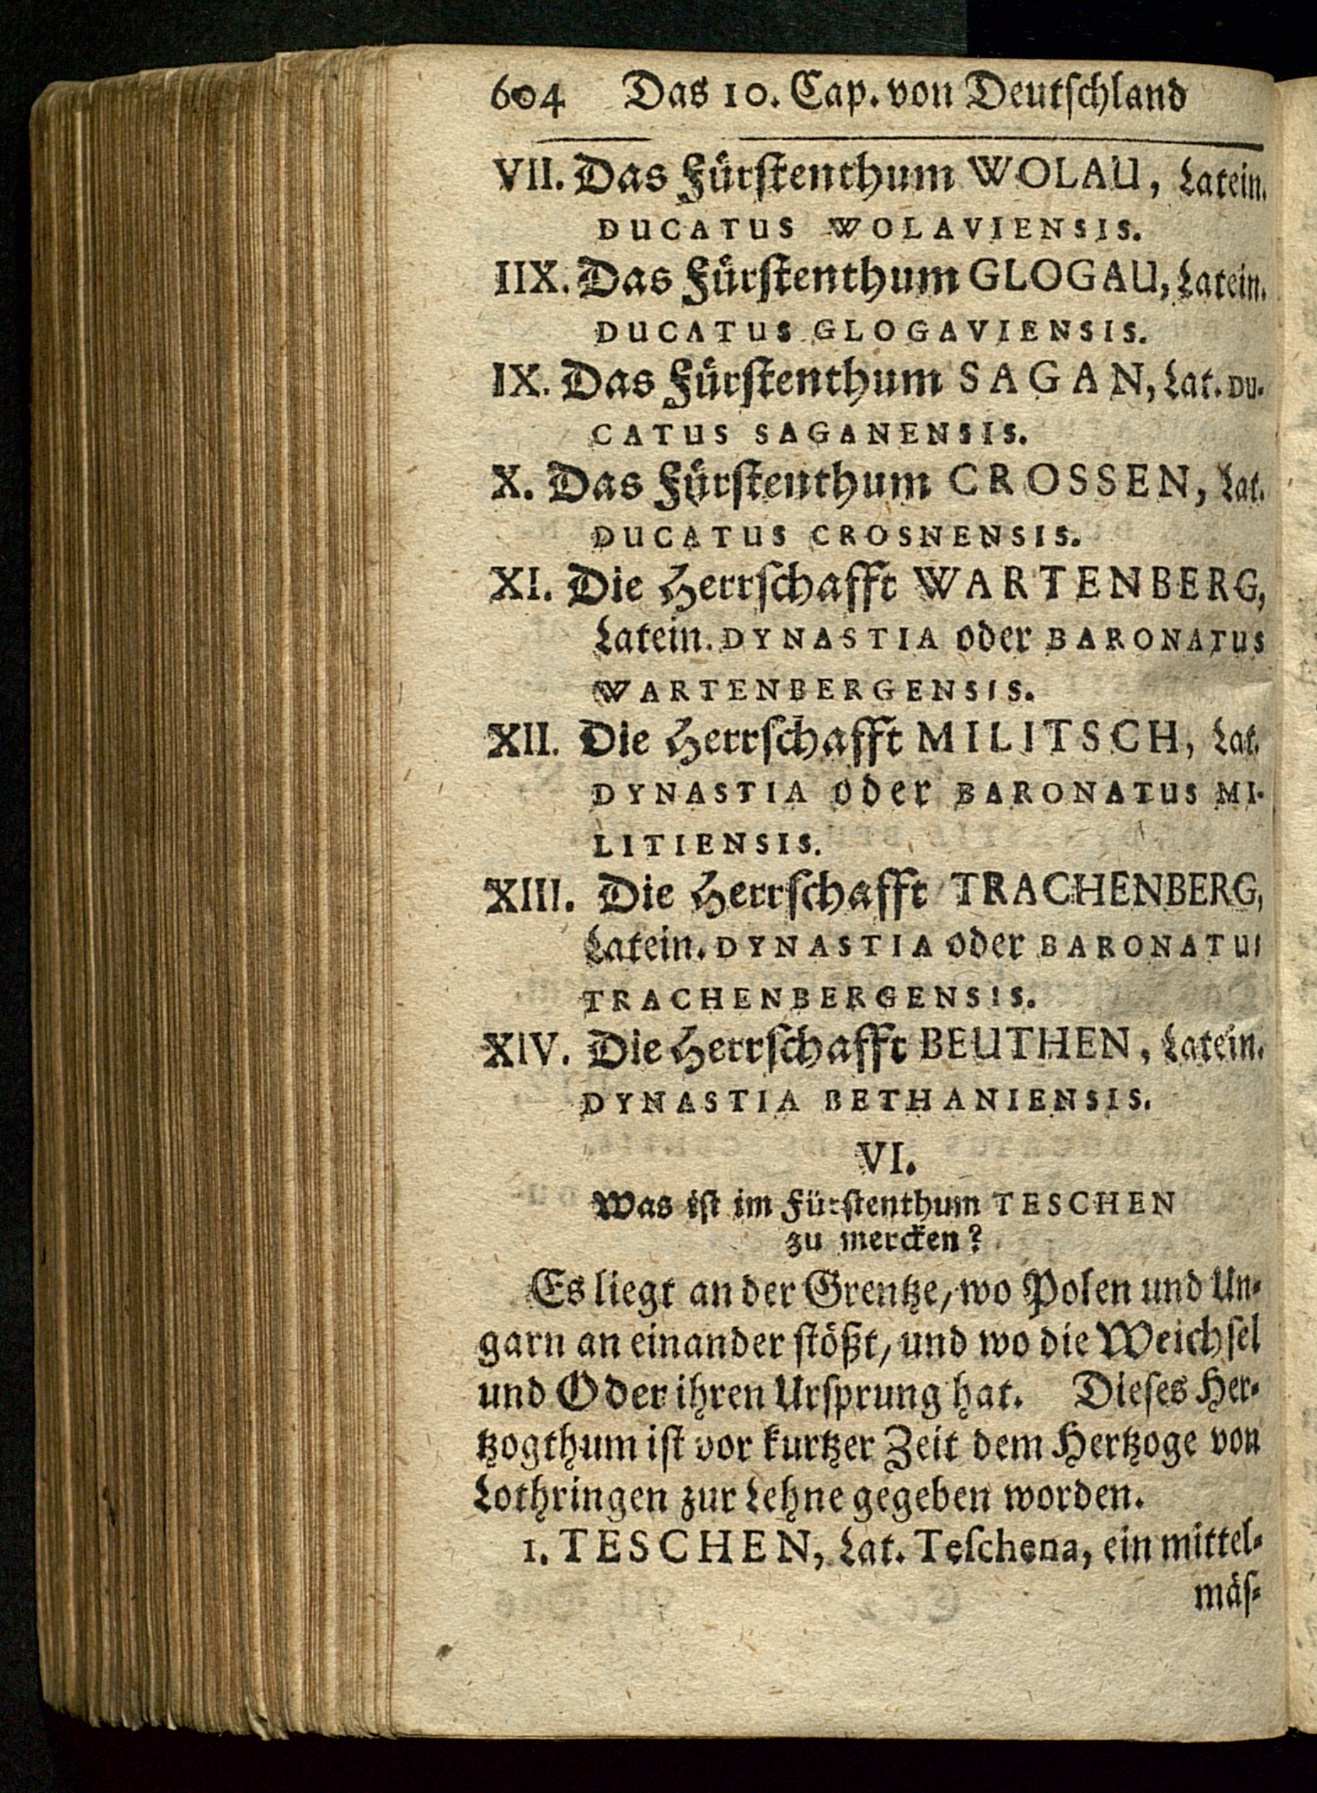 604 Das 10. Cap. von Deutſchland
VII. Das Fürſtenthum WOLAU, Latein.
DUCATUS WOLAVIENSIS.
IIX. Das Fürſtenthum GLOGAU, Latein.
DUCATUS GLOGAVIENSIS.
IX. Das Fürſtenthum SAGAN, Lat. DU-
CATUS SAGANENSIS.
X. Das Fürſtenthum CROSSEN, Lat.
DUCATUS CROSNENSIS.
XI. Die Herrſchafft WARTENBERG,
Latein. DYNASTIA oder BARONATUS
WARTENBERGENSIS.
XII. Die Herrſchafft MILITSCH, Lat.
DYNASTIA oder BARONATUS MI-
LITIENSIS.
XIII. Die Herrſchafft TRACHENBERG,
Latein. DYNASTIA oder BARONATUS
TRACHENBERGENSIS.
XIV. Die Herrſchafft BEUTHEN, Latein.
DYNASTIA BETHANIENSIS.
VI.
Was iſt im Fürſtenthum TESCHEN
zu mercken?
Es liegt an der Grentze, wo Polen und Un-
garn an einander ſtößt, und wo die Weichſel
und Oder ihren Urſprung hat. Dieſes Her-
tzogthum iſt vor kurtzer Zeit dem Hertzoge von
Lothringen zur Lehne gegeben worden.
1. TESCHEN, Lat. Teſchena, ein mittel-
mäſ-